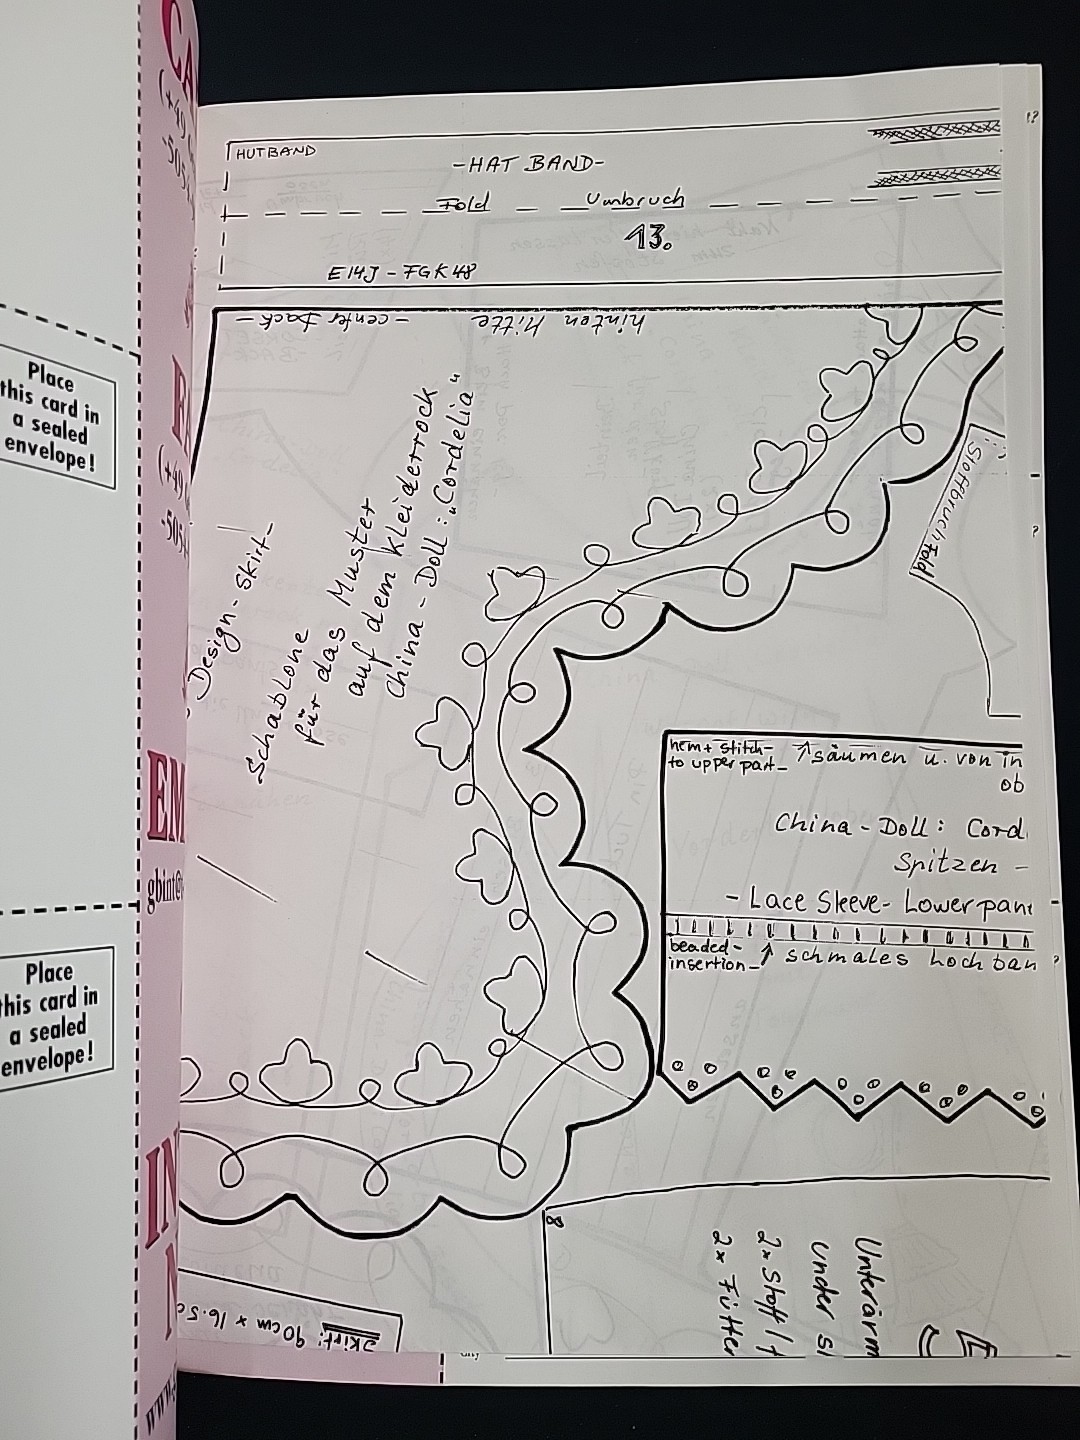 CA
(+49
-505
FA
(+49
-505
EM
gbint@
IN
N
www.
Place
this card in
a sealed
envelope!
Place
this card in
a sealed
envelope!
HUTBAND
-HAT BAND-
Fold Umbruch
13.
E14J-FGK48
hinten Mitte - center back -
Design-skirt-
Schablone
für das Muster
auf dem Kleiderrock
China-Doll: „Cordelia"
Stoffbruch Fold
hem + stitch-
to upper part-
↑ säumen u. von in
ob
China-Doll: Cord
Spitzen -
- Lace Sleeve- Lower part
beaded-
insertion-
↑ schmales Loch ban
8
Unterärm
Under sl
2x Stoff / f
2x Futter
Skirt: 90cm x 16.5c